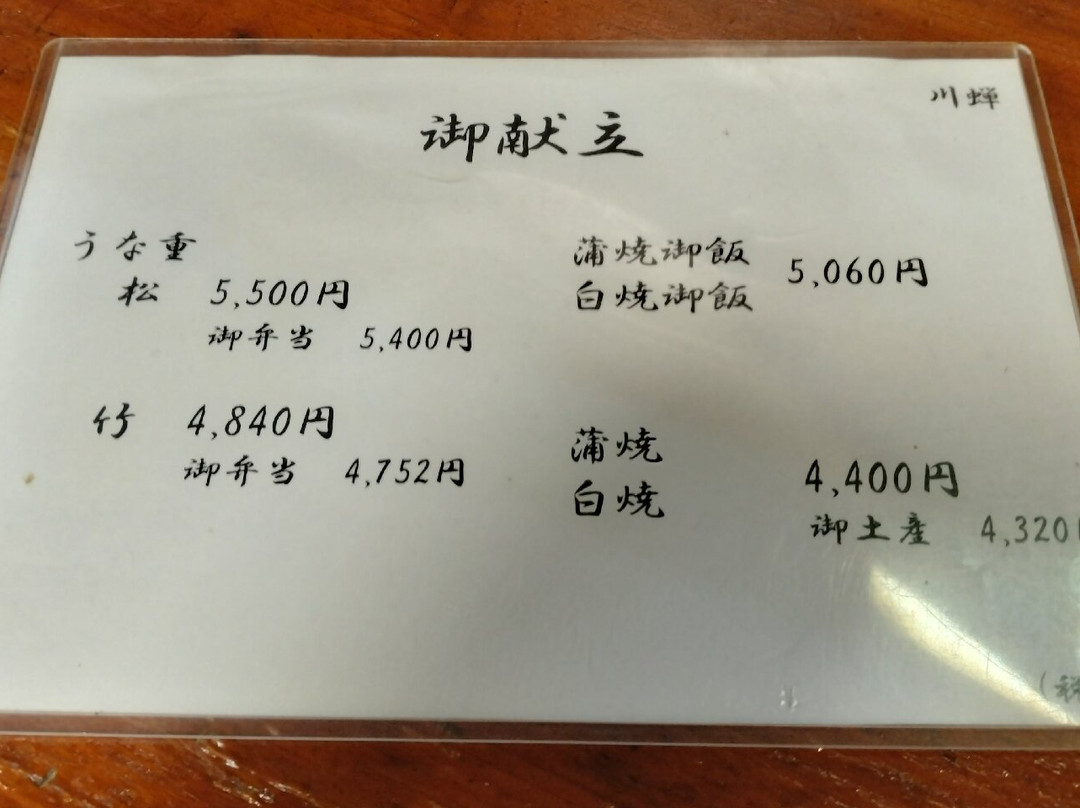 川蝉
御献立
うな重
松 5,500円
御弁当 5,400円
竹 4,840円
御弁当 4,752円
蒲焼御飯
白焼御飯
5,060円
蒲焼
白焼
4,400円
御土産 4,320